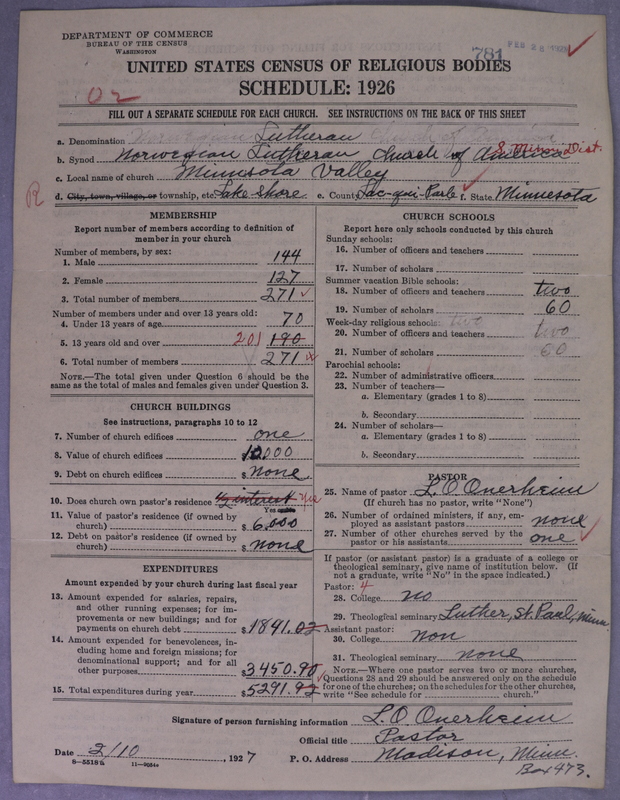 DEPARTMENT OF COMMERCE
BUREAU OF THE CENSUS
WASHINGTON
781 FEB 28
UNITED STATES CENSUS OF RELIGIOUS BODIES
SCHEDULE: 1926
02
FILL OUT A SEPARATE SCHEDULE FOR EACH CHURCH. SEE INSTRUCTIONS ON THE BACK OF THIS SHEET
a. Denomination Norwegian Lutheran Church of America
b. Synod Norwegian Lutheran Church of America S. Minn Dist.
c. Local name of church Minnesota Valley
R d. City, town, village, or township, etc. Lake Shore e. County Lac-qui-Parle f. State Minnesota
MEMBERSHIP
Report number of members according to definition of member in your church
Number of members, by sex:
1. Male 144
2. Female 127
3. Total number of members 271
Number of members under and over 13 years old:
4. Under 13 years of age 70
5. 13 years old and over 201 190
6. Total number of members 271
NOTE.—The total given under Question 6 should be the
same as the total of males and females given under Question 3.
CHURCH BUILDINGS
See instructions, paragraphs 10 to 12
7. Number of church edifices one
8. Value of church edifices 10000
9. Debt on church edifices $ None
10. Does church own pastor's residence 1/2 interest Yes
Yes or no
11. Value of pastor's residence (if owned by
church) $ 6,000
12. Debt on pastor's residence (if owned by
church) $ none
EXPENDITURES
Amount expended by your church during last fiscal year
13. Amount expended for salaries, repairs,
and other running expenses; for im-
provements or new buildings; and for
payments on church debt $ 1841.02
14. Amount expended for benevolences, in-
cluding home and foreign missions; for
denominational support; and for all
other purposes $ 3450.90
15. Total expenditures during year $ 5291.92
CHURCH SCHOOLS
Report here only schools conducted by this church
Sunday schools:
16. Number of officers and teachers
17. Number of scholars
Summer vacation Bible schools:
18. Number of officers and teachers two
19. Number of scholars 60
Week-day religious schools: two
20. Number of officers and teachers two
21. Number of scholars 60
Parochial schools:
22. Number of administrative officers
23. Number of teachers—
a. Elementary (grades 1 to 8)
b. Secondary
24. Number of scholars—
a. Elementary (grades 1 to 8)
b. Secondary
PASTOR
25. Name of pastor L. O. Onerheim
(If church has no pastor, write "None")
26. Number of ordained ministers, if any, em-
ployed as assistant pastors none
27. Number of other churches served by the
pastor or his assistants one
If pastor (or assistant pastor) is a graduate of a college or
theological seminary, give name of institution below. (If
not a graduate, write "No" in the space indicated.)
Pastor: 4
28. College no
29. Theological seminary Luther, St. Paul, Minn
Assistant pastor:
30. College non
31. Theological seminary none
NOTE.—Where one pastor serves two or more churches,
Questions 28 and 29 should be answered only on the schedule
for one of the churches; on the schedules for the other churches,
write "See schedule for church."
Signature of person furnishing information L. O. Onerheim
Official title Pastor
Date 2/10, 1927 P. O. Address Madison, Minn.
8-5518a 11-9054a Box 473.